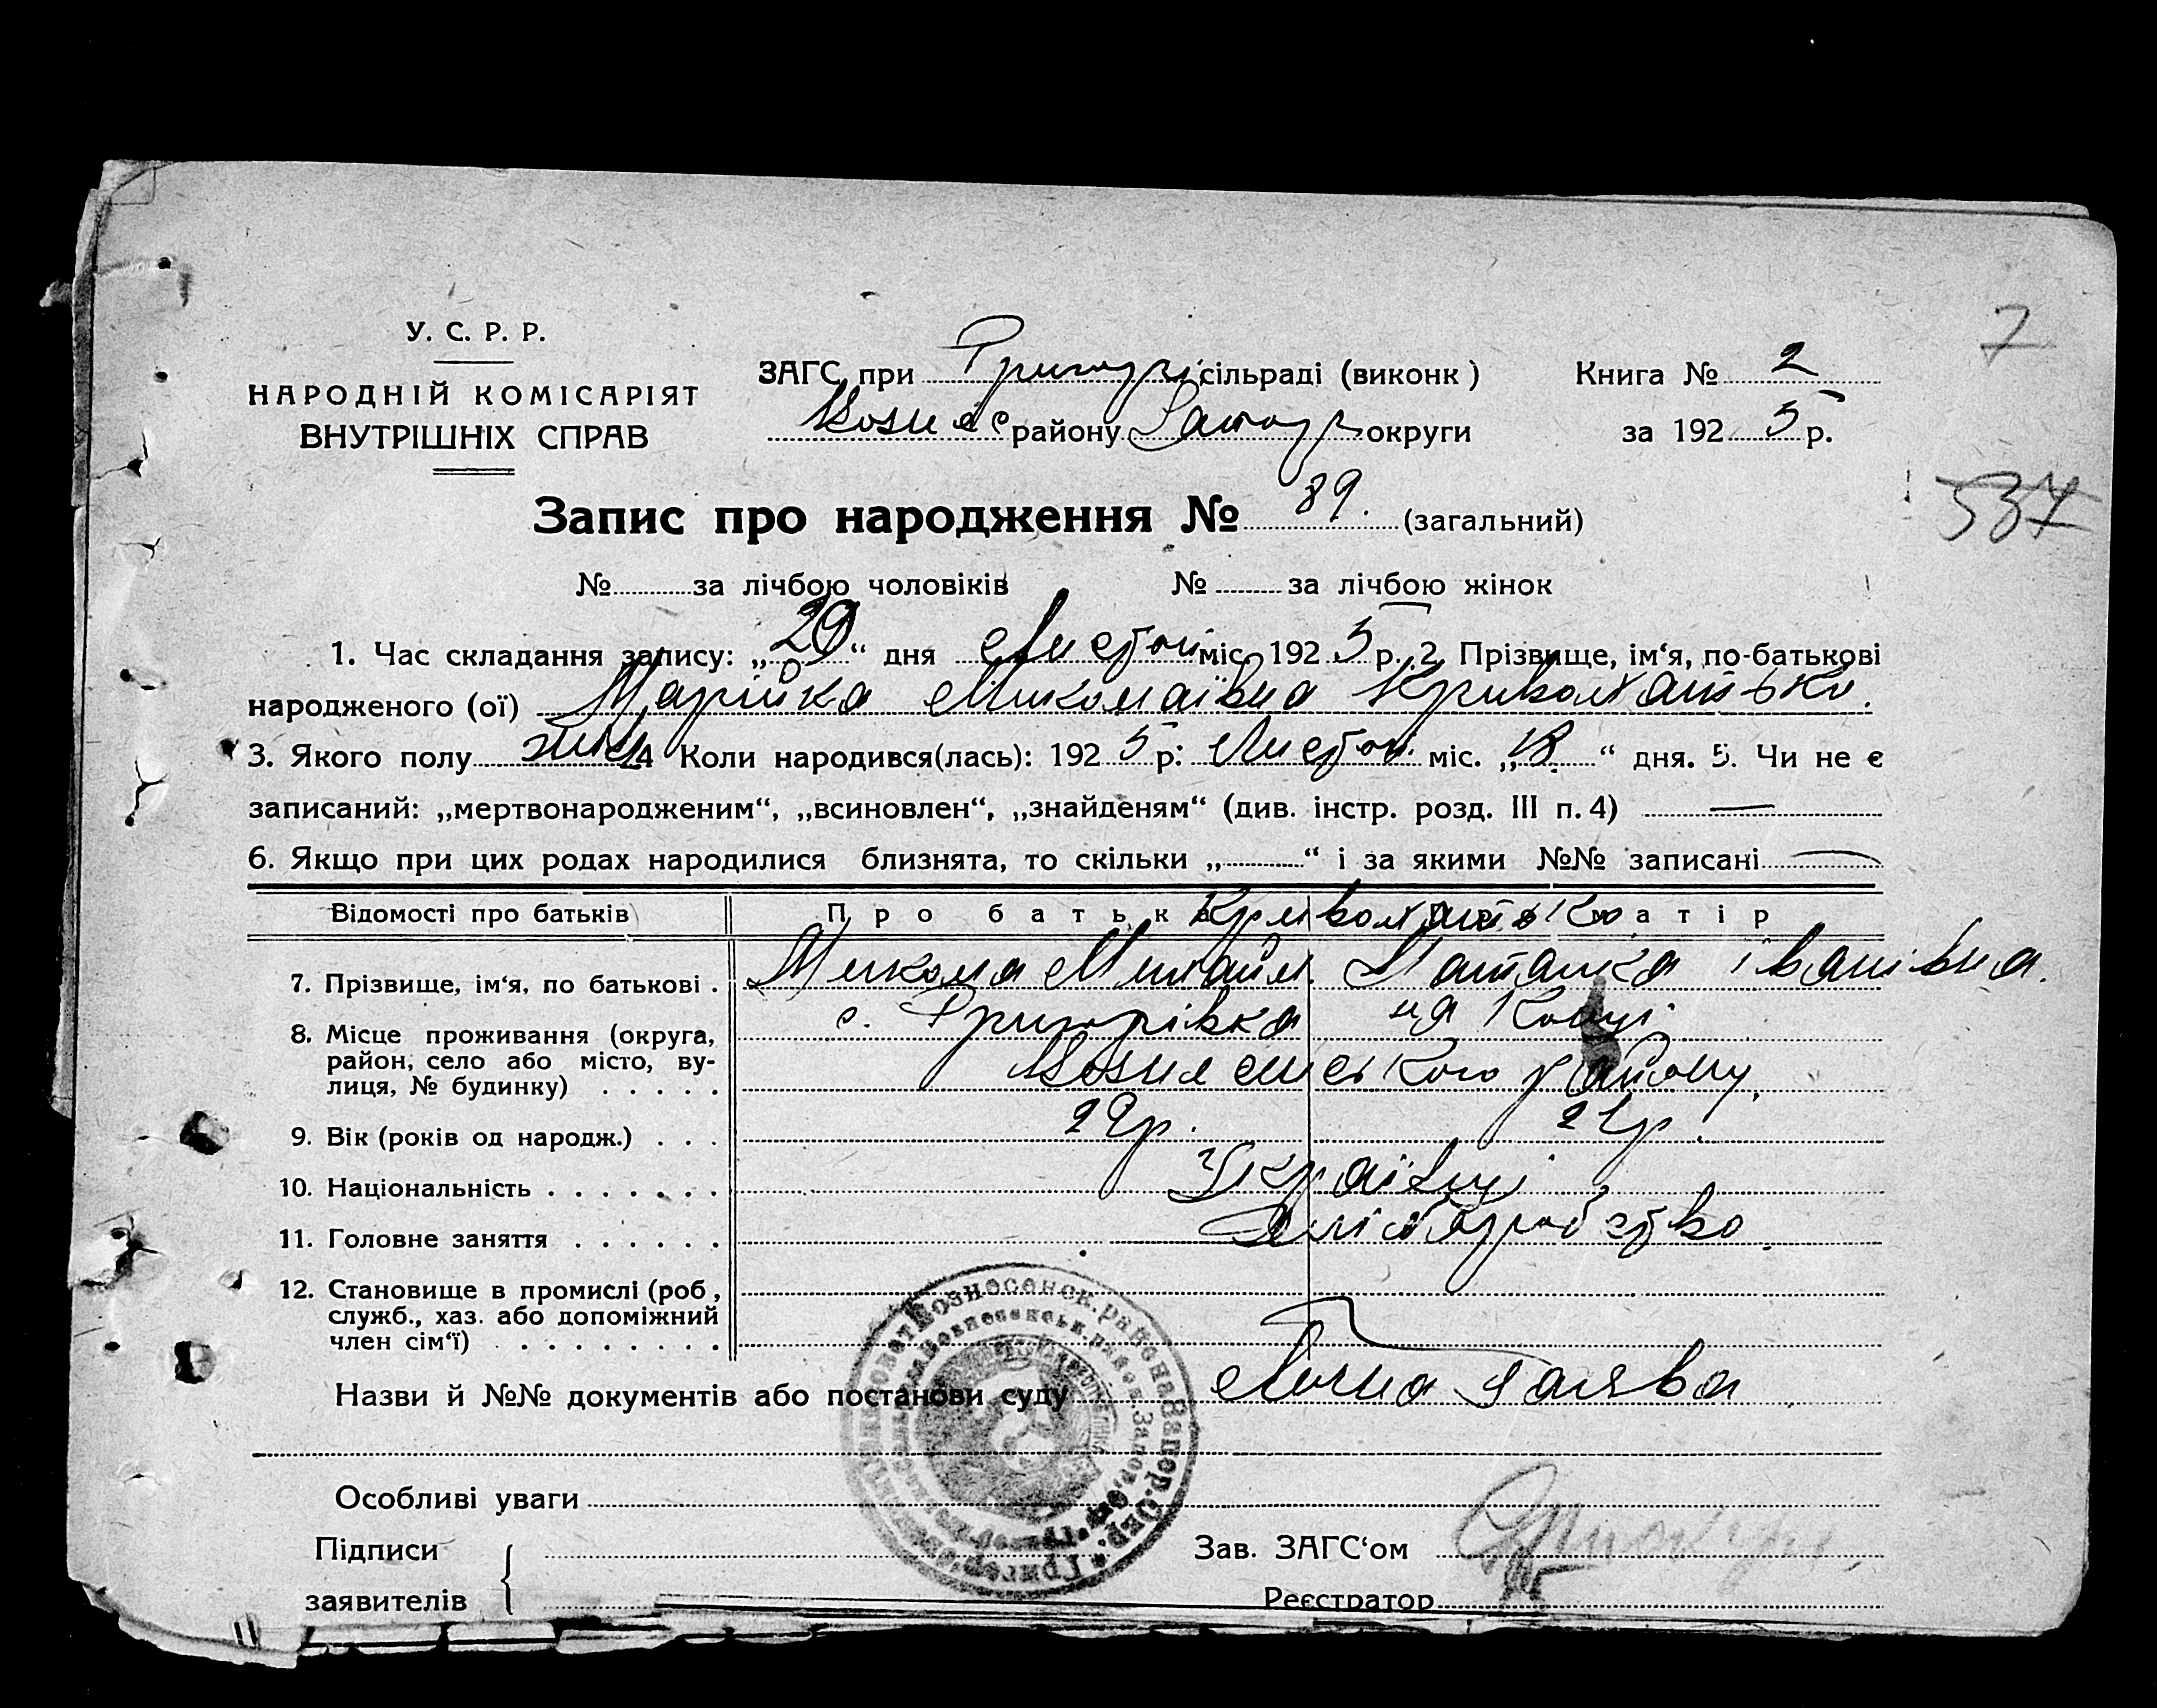 7
У. С. Р. Р.
НАРОДНІЙ КОМІСАРІЯТ
ВНУТРІШНІХ СПРАВ
ЗАГС при Григорів сільраді (виконк) Книга № 2
Вознес району Запор округи за 1925 р.
537
Запис про народження № 89. (загальний)
№ за лічбою чоловіків № за лічбою жінок
1. Час складання запису: „29“ дня Листоп міс. 1925 р. 2. Прізвище, ім‘я, по-батькові
народженого (ої) Марійка Миколаівна Кривохатько.
3. Якого полу жін 4 Коли народився(лась): 1925 р: Листоп. міс. „18.“ дня. 5. Чи не є
записаний: „мертвонародженим“, „всиновлен“, „знайденям“ (див. інстр. розд. III п. 4) —
6. Якщо при цих родах народилися близнята, то скільки „ “ і за якими №№ записані —
Відомості про батьків Про батька Про матір
Кривохатько
7. Прізвище, ім‘я, по батькові . Микола Михайл. Наталка Іванівна.
8. Місце проживання (округа, район, село або місто, вулиця, № будинку) с. Григорівка на Конці
Вознесенського району,
9. Вік (років од народж.) . . . 22 р. 21 р.
10. Національність . . . . . . . Украінці
11. Головне заняття . . . . . . Хліборобство.
12. Становище в промислі (роб., служб., хаз. або допоміжний член сім‘ї) . . . . . . . .
Назви й №№ документів або постанови суду Лична заява
Особливі уваги
Підписи
заявителів
Зав. ЗАГС‘ом
Реєстратор